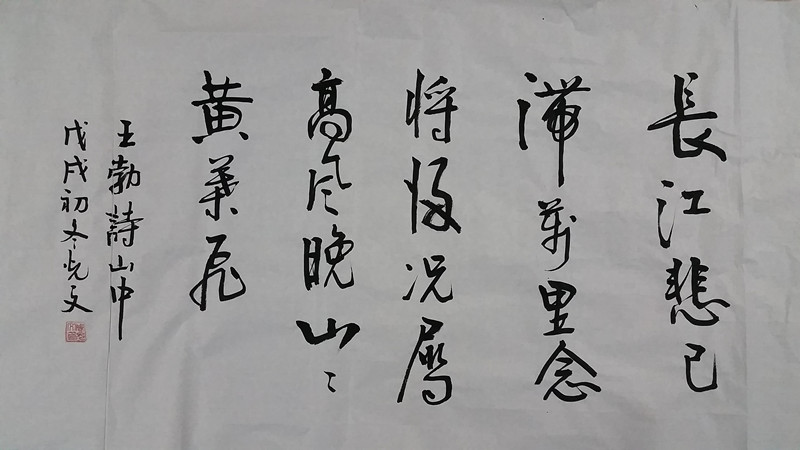 長江悲已
滯萬里念
將歸况屬
高風晚山〻
黃葉飛
王勃詩山中
戊戌初冬光文